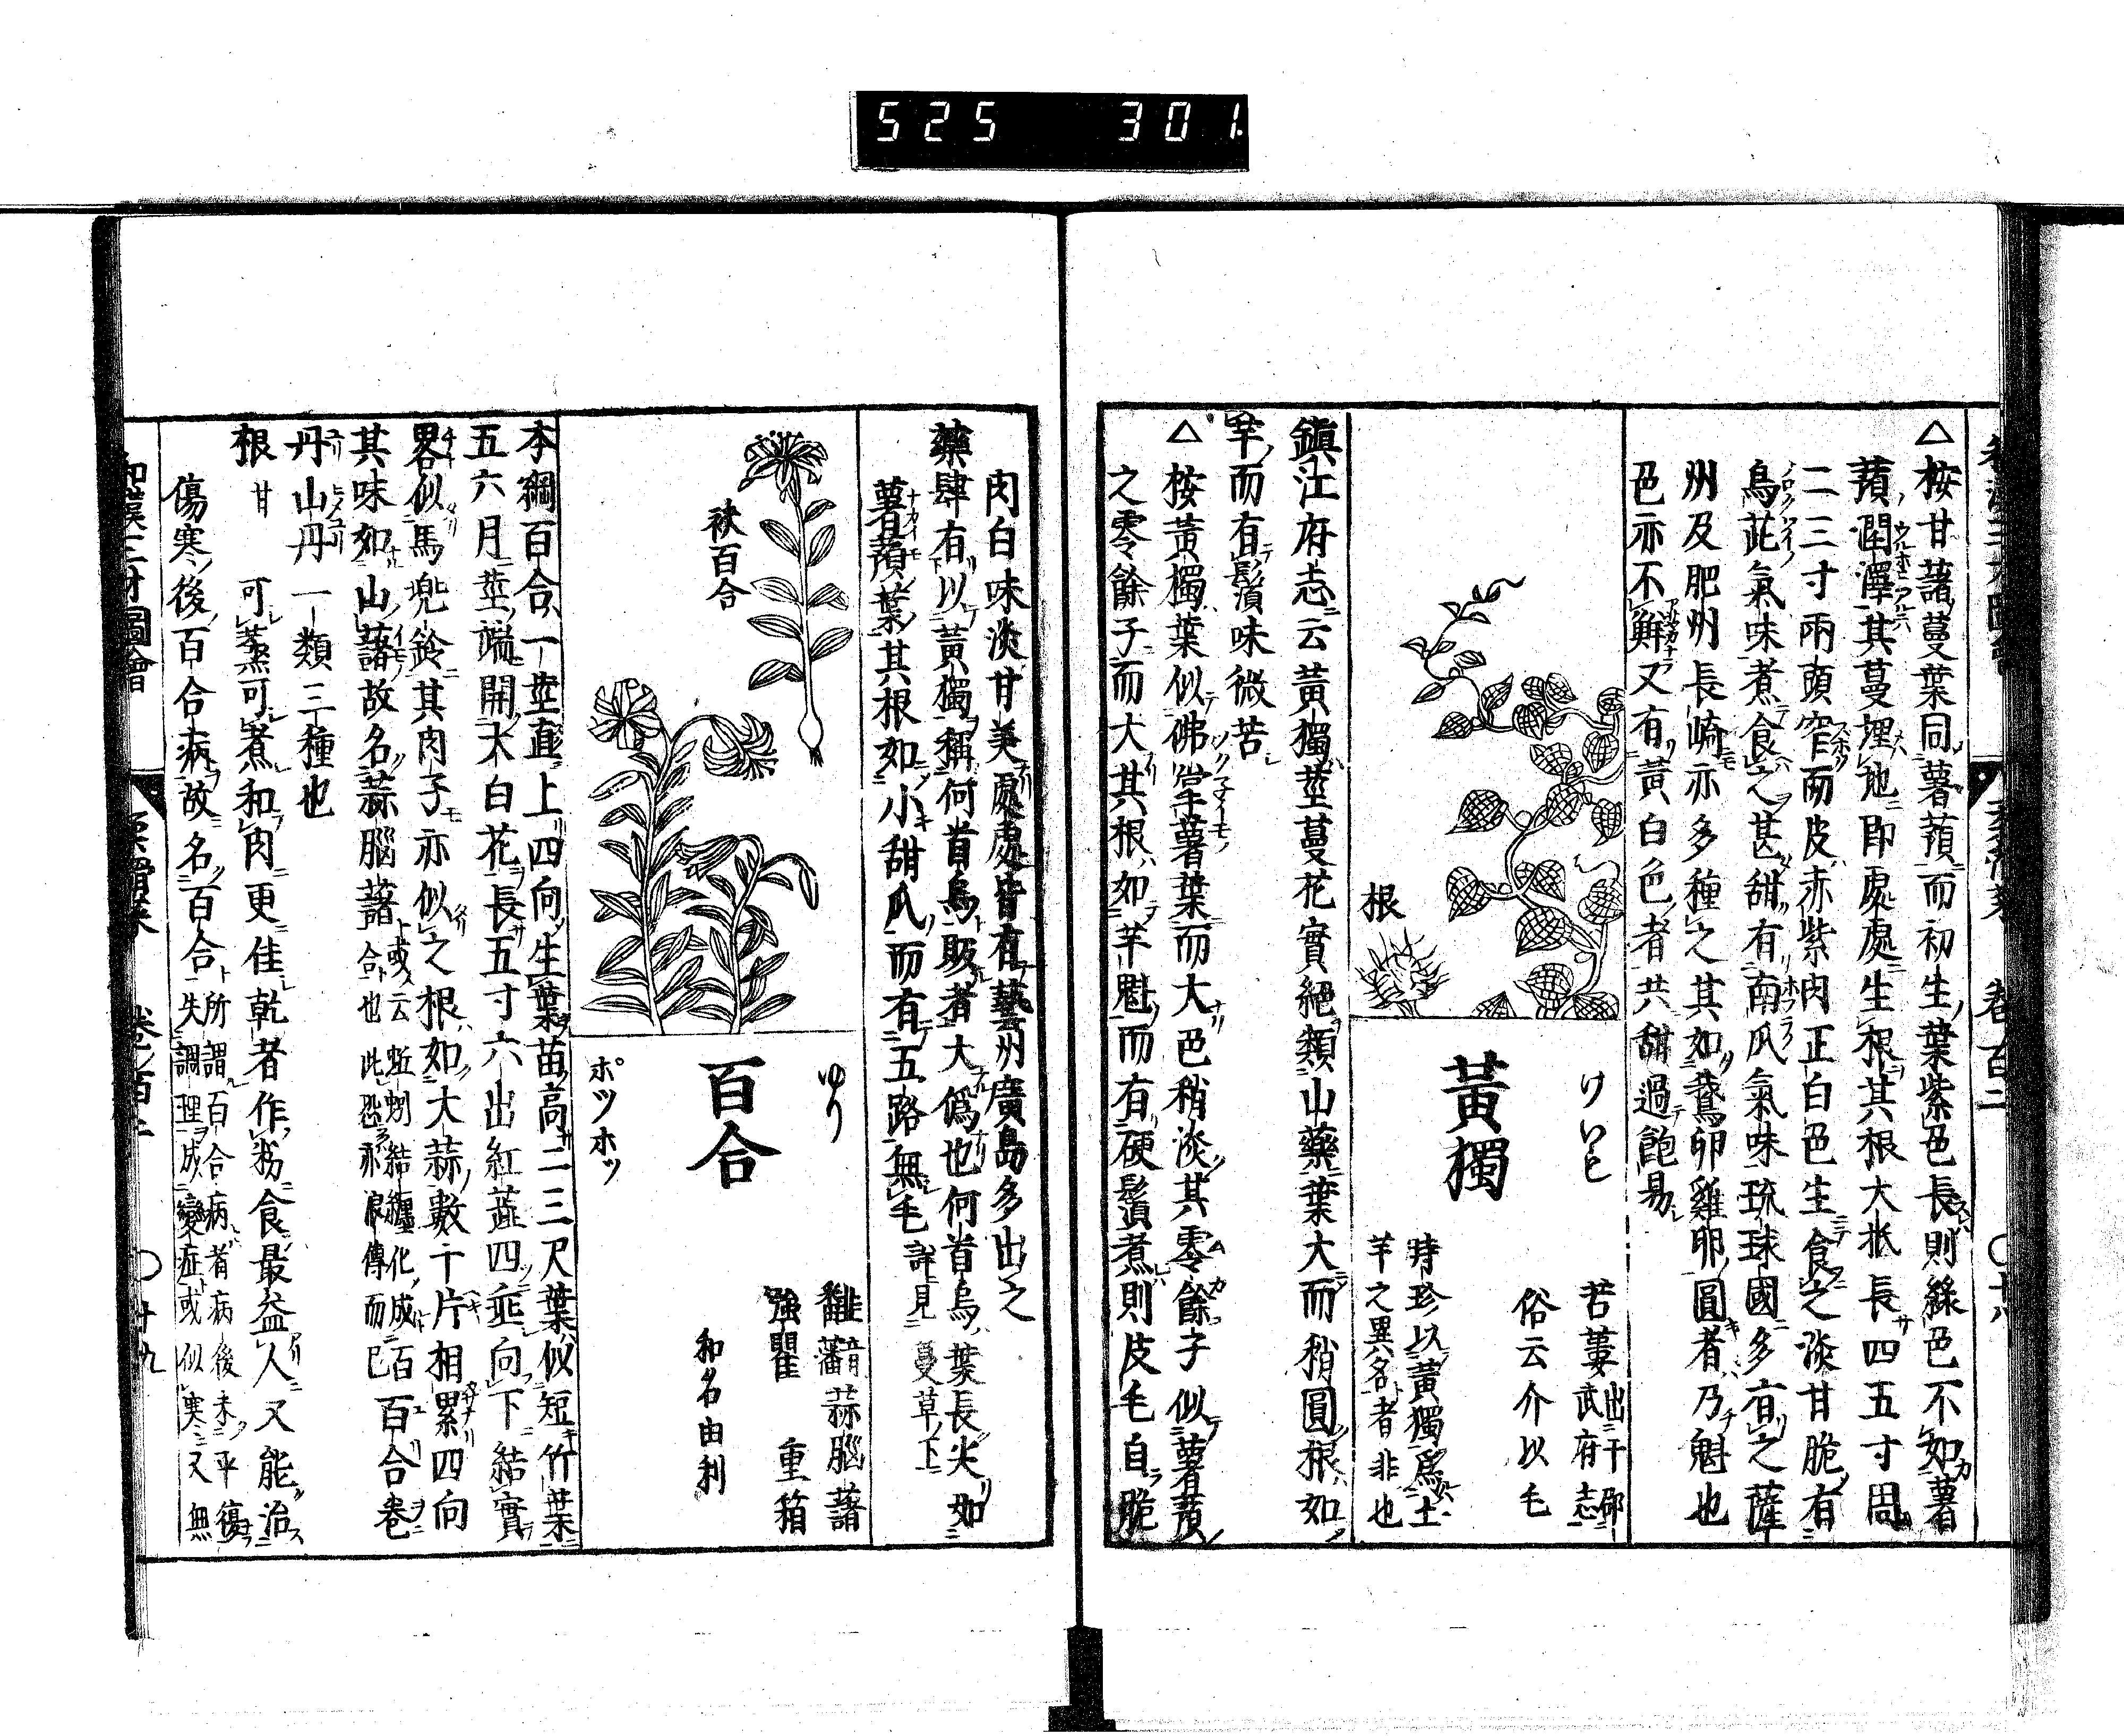 525 301
△按甘藷蔓葉同薯蕷而初生葉紫色長則綠色不如薯
蕷潤澤其蔓埋地卽處處生根其根大抵長四五寸周
二三寸兩頭窄而皮赤紫肉正白色生食之淡甘脆有
烏芘氣味煮食之甚甜有南瓜氣味琉球國多有之薩
州及肥州長崎亦多種之其如鵞卵雞卵圓者乃魁也
色亦不鮮又有黃白色者共甜過飽易
根
黃獨
けいも
苦藇 出干郘武府志
俗云介以毛
時珍以黃獨爲土
芋之異名者非也
鎭江府志云黃獨莖蔓花實絕類山藥葉大而稍圓根如
芋而有鬚味微苦
△按黃獨葉似佛掌薯葉而大色稍淡其零餘子似薯蕷
之零餘子而大其根如芋魁而有硬鬚煮則皮毛自脫
肉白味淡甘美處處皆有藝州廣島多出之
藥肆有以黃獨稱何首烏販者大僞也何首烏葉長尖如
薯蕷葉其根如小甜瓜而有五路無毛 詳見蔓草下
袂百合
百合
ゆり
ポツホツ
䪥音藩 蒜腦藷
強瞿 重箱
和名由利
本綱百合一莖直上四向生葉苗高二三尺葉似短竹葉
五六月莖端開大白花長五寸六出紅蘂四垂向下結實
畧似馬兜鈴其肉子亦似之根如大蒜數十片相累四向
其味如山藷故名蒜腦藷 或云蚯蚓結纏化成百合也此恐亦浪傳而已 百合卷
丹山丹一類三種也
根 甘 可蒸可煮和肉更佳乾者作粉食最益人又能治
傷寒後百合病故名百合 所謂百合病者病後未平復失調理成變症或似寒又無
和漢三才圖會 柔滑菜 卷ノ百二 〇十九